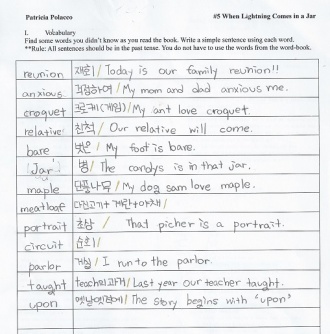 Patricia Polacco #5 When Lightning Comes in a Jar
I. Vocabulary
Find some words you didn't know as you read the book. Write a simple sentence using each word.
**Rule: All sentences should be in the past tense. You do not have to use the words from the word-book.
reunion 재회 / Today is our family reunion!!
anxious 걱정하여 / My mom and dad anxious me.
croquet 크로케(게임) / My ant love croquet.
relative 친척 / Our relative will come.
bare 벗은 / My foot is bare.
Jar 병 / The candys is in that jar.
maple 단풍나무 / My dog sam love maple.
meatloaf 다진고기 + 계란 + 야채 /
portrait 초상 / That picher is a portrait.
circuit 순회 /
parlor 거실 / I run to the parlor.
taught teach의 과거 / Last year our teacher taught.
upon 옛날 옛적에 / The story begins with "upon"